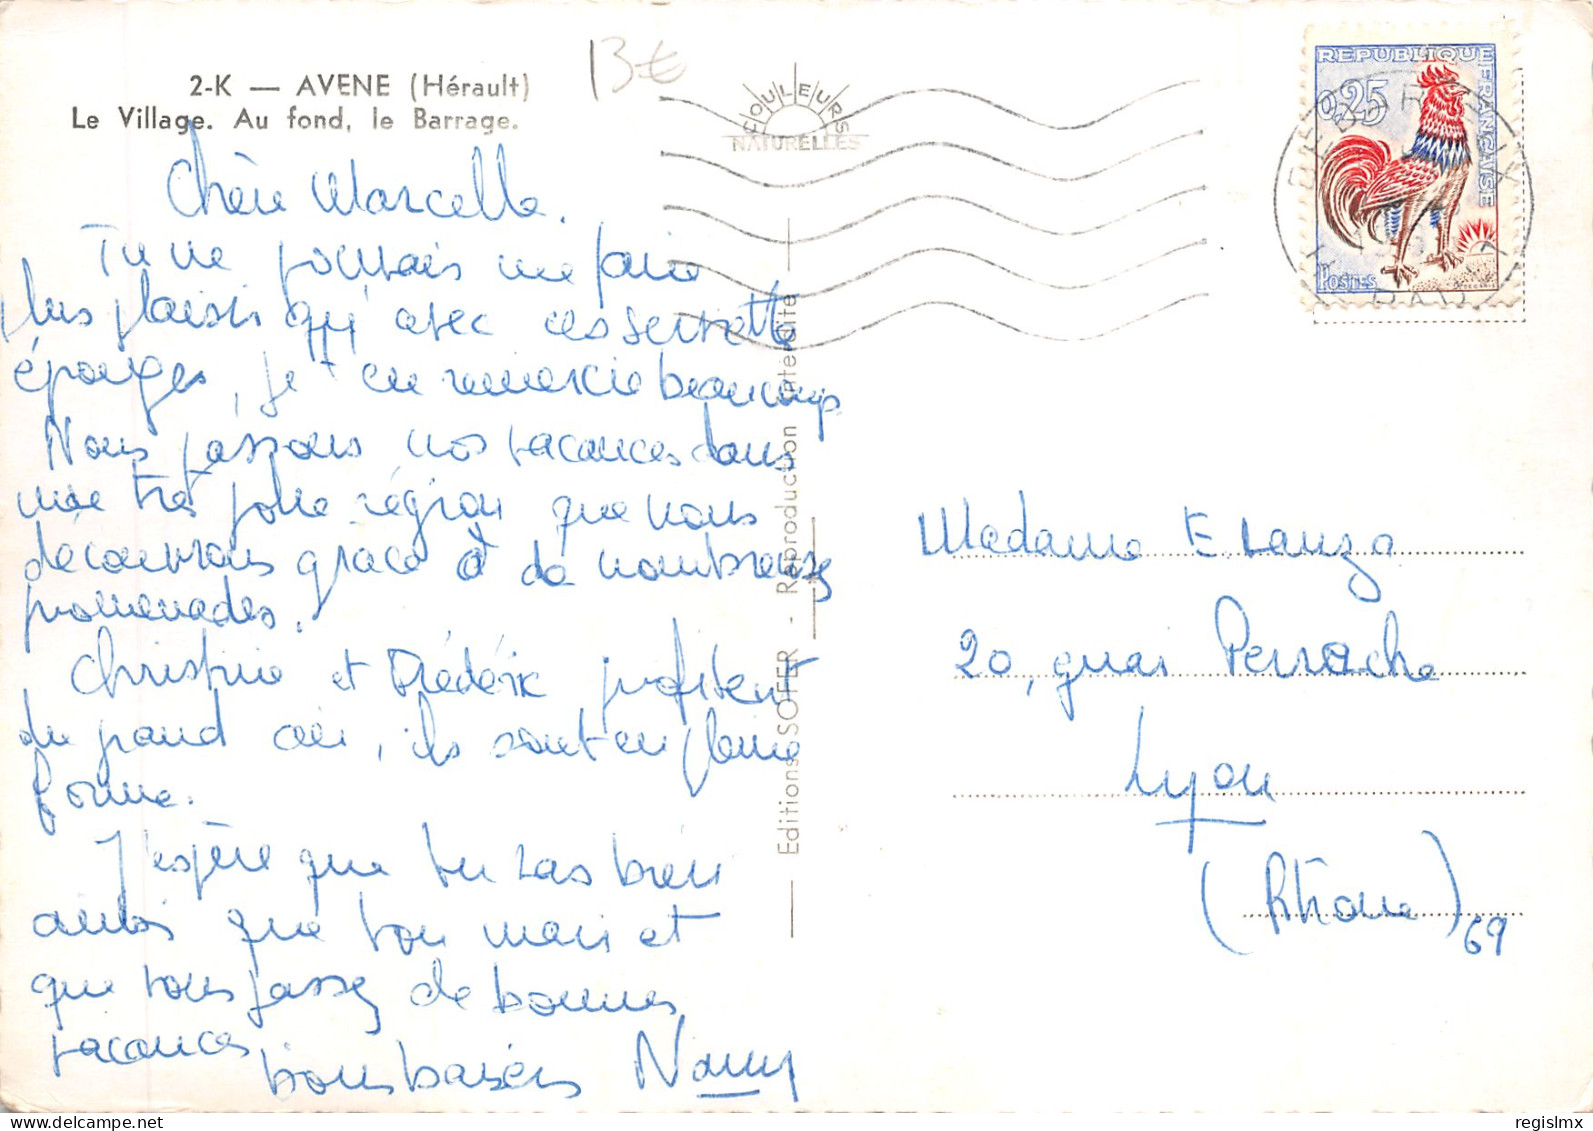 2-K — AVENE (Hérault)
Le Village. Au fond, le Barrage.
13€
COULEURS
NATURELLES
REPUBLIQUE FRANÇAISE
0,25
POSTES
Chère Marcelle.
Tu ne pouvais me faire
plus plaisir qu'avec ces serviettes
éponges, je t'en remercie beaucoup.
Nous passons nos vacances dans
une très jolie région que nous
découvrons grâce à de nombreuses
promenades.
Christine et Frédéric profitent
du grand air, ils sont en pleine
forme.
J'espère que tu vas bien
ainsi que ton mari et
que vous passez de bonnes
vacances
bons baisers Nany
Editions SOFER - Reproduction interdite
Madame E. Lanza
20, quai Perrache
Lyon
(Rhône) 69
regislmx